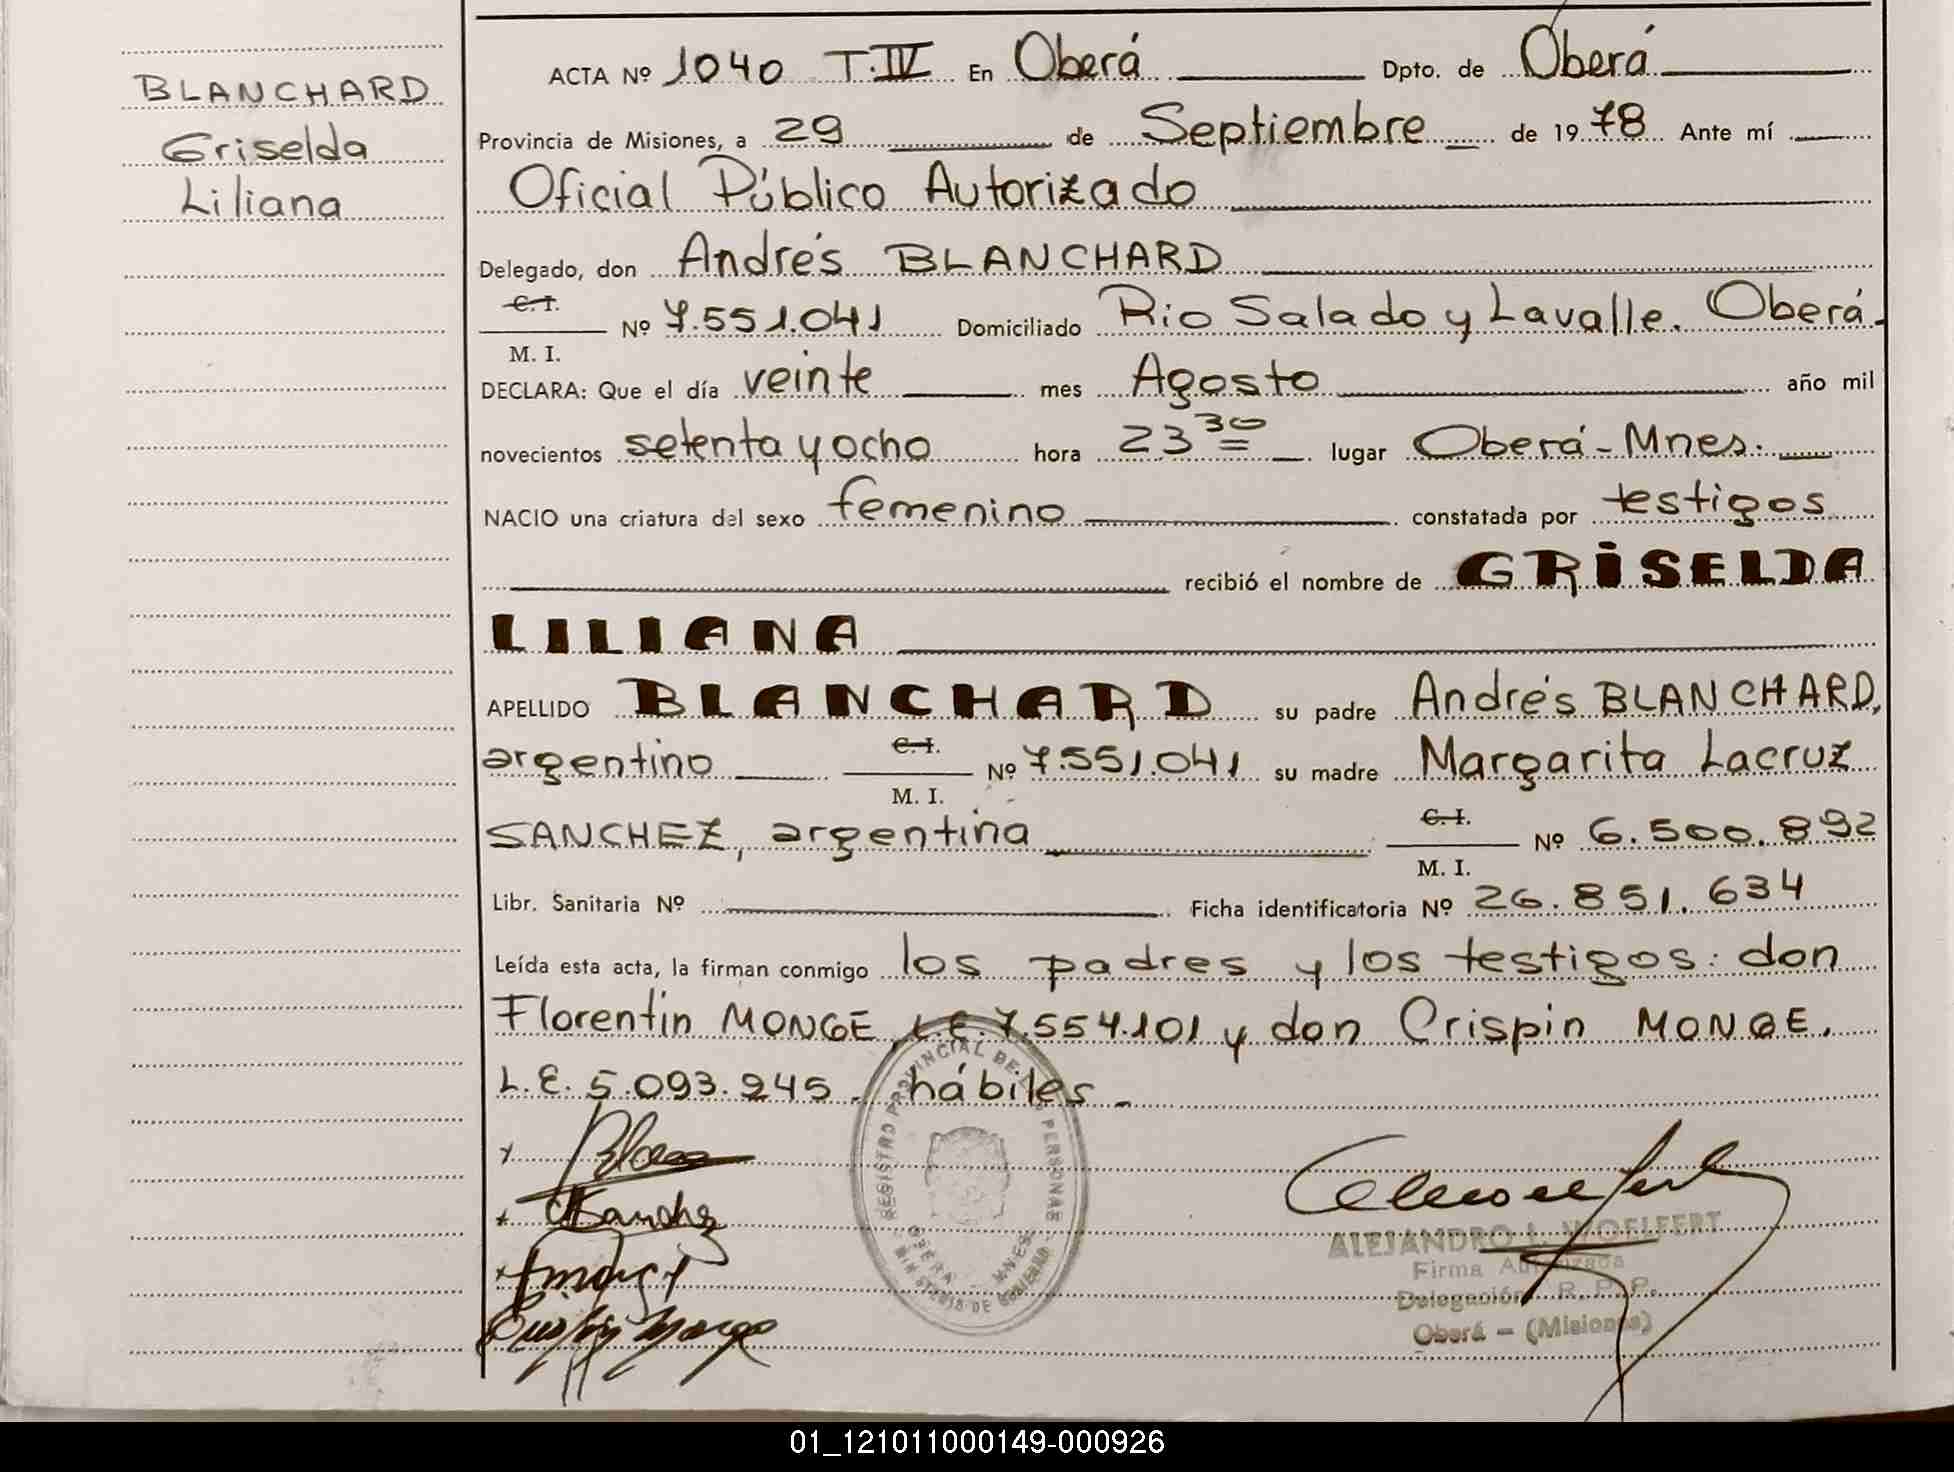 BLANCHARD
Griselda
Liliana
ACTA Nº 1040 T.IV En Oberá Dpto. de Oberá
Provincia de Misiones, a 29 de Septiembre de 1978 Ante mí
Oficial Público Autorizado
Delegado, don Andrés BLANCHARD
C.I.
Nº 7.551.041 Domiciliado Rio Salado y Lavalle. Oberá.
M. I.
DECLARA: Que el día veinte mes Agosto año mil
novecientos setenta y ocho hora 23 30 lugar Oberá - Mnes.
NACIO una criatura del sexo femenino constatada por testigos
recibió el nombre de GRISELDA
LILIANA
APELLIDO BLANCHARD su padre Andrés BLANCHARD,
argentino C.I. Nº 7.551.041 su madre Margarita Lacruz
M. I.
SANCHEZ, argentina C.I. Nº 6.500.892
M. I.
Libr. Sanitaria Nº Ficha identificatoria Nº 26.851.634
Leída esta acta, la firman conmigo los padres y los testigos: don
Florentin MONGE, L.E. 7.554.101 y don Crispin MONGE.
L.E. 5.093.245. hábiles.
REGISTRO PROVINCIAL DE PERSONAS
OBERA MNES.
MINISTERIO DE GOBIERNO
ALEJANDRO L. WOELFERT
Firma Autorizada
Delegación R.P.P.
Oberá - (Misiones)
01_121011000149-000926